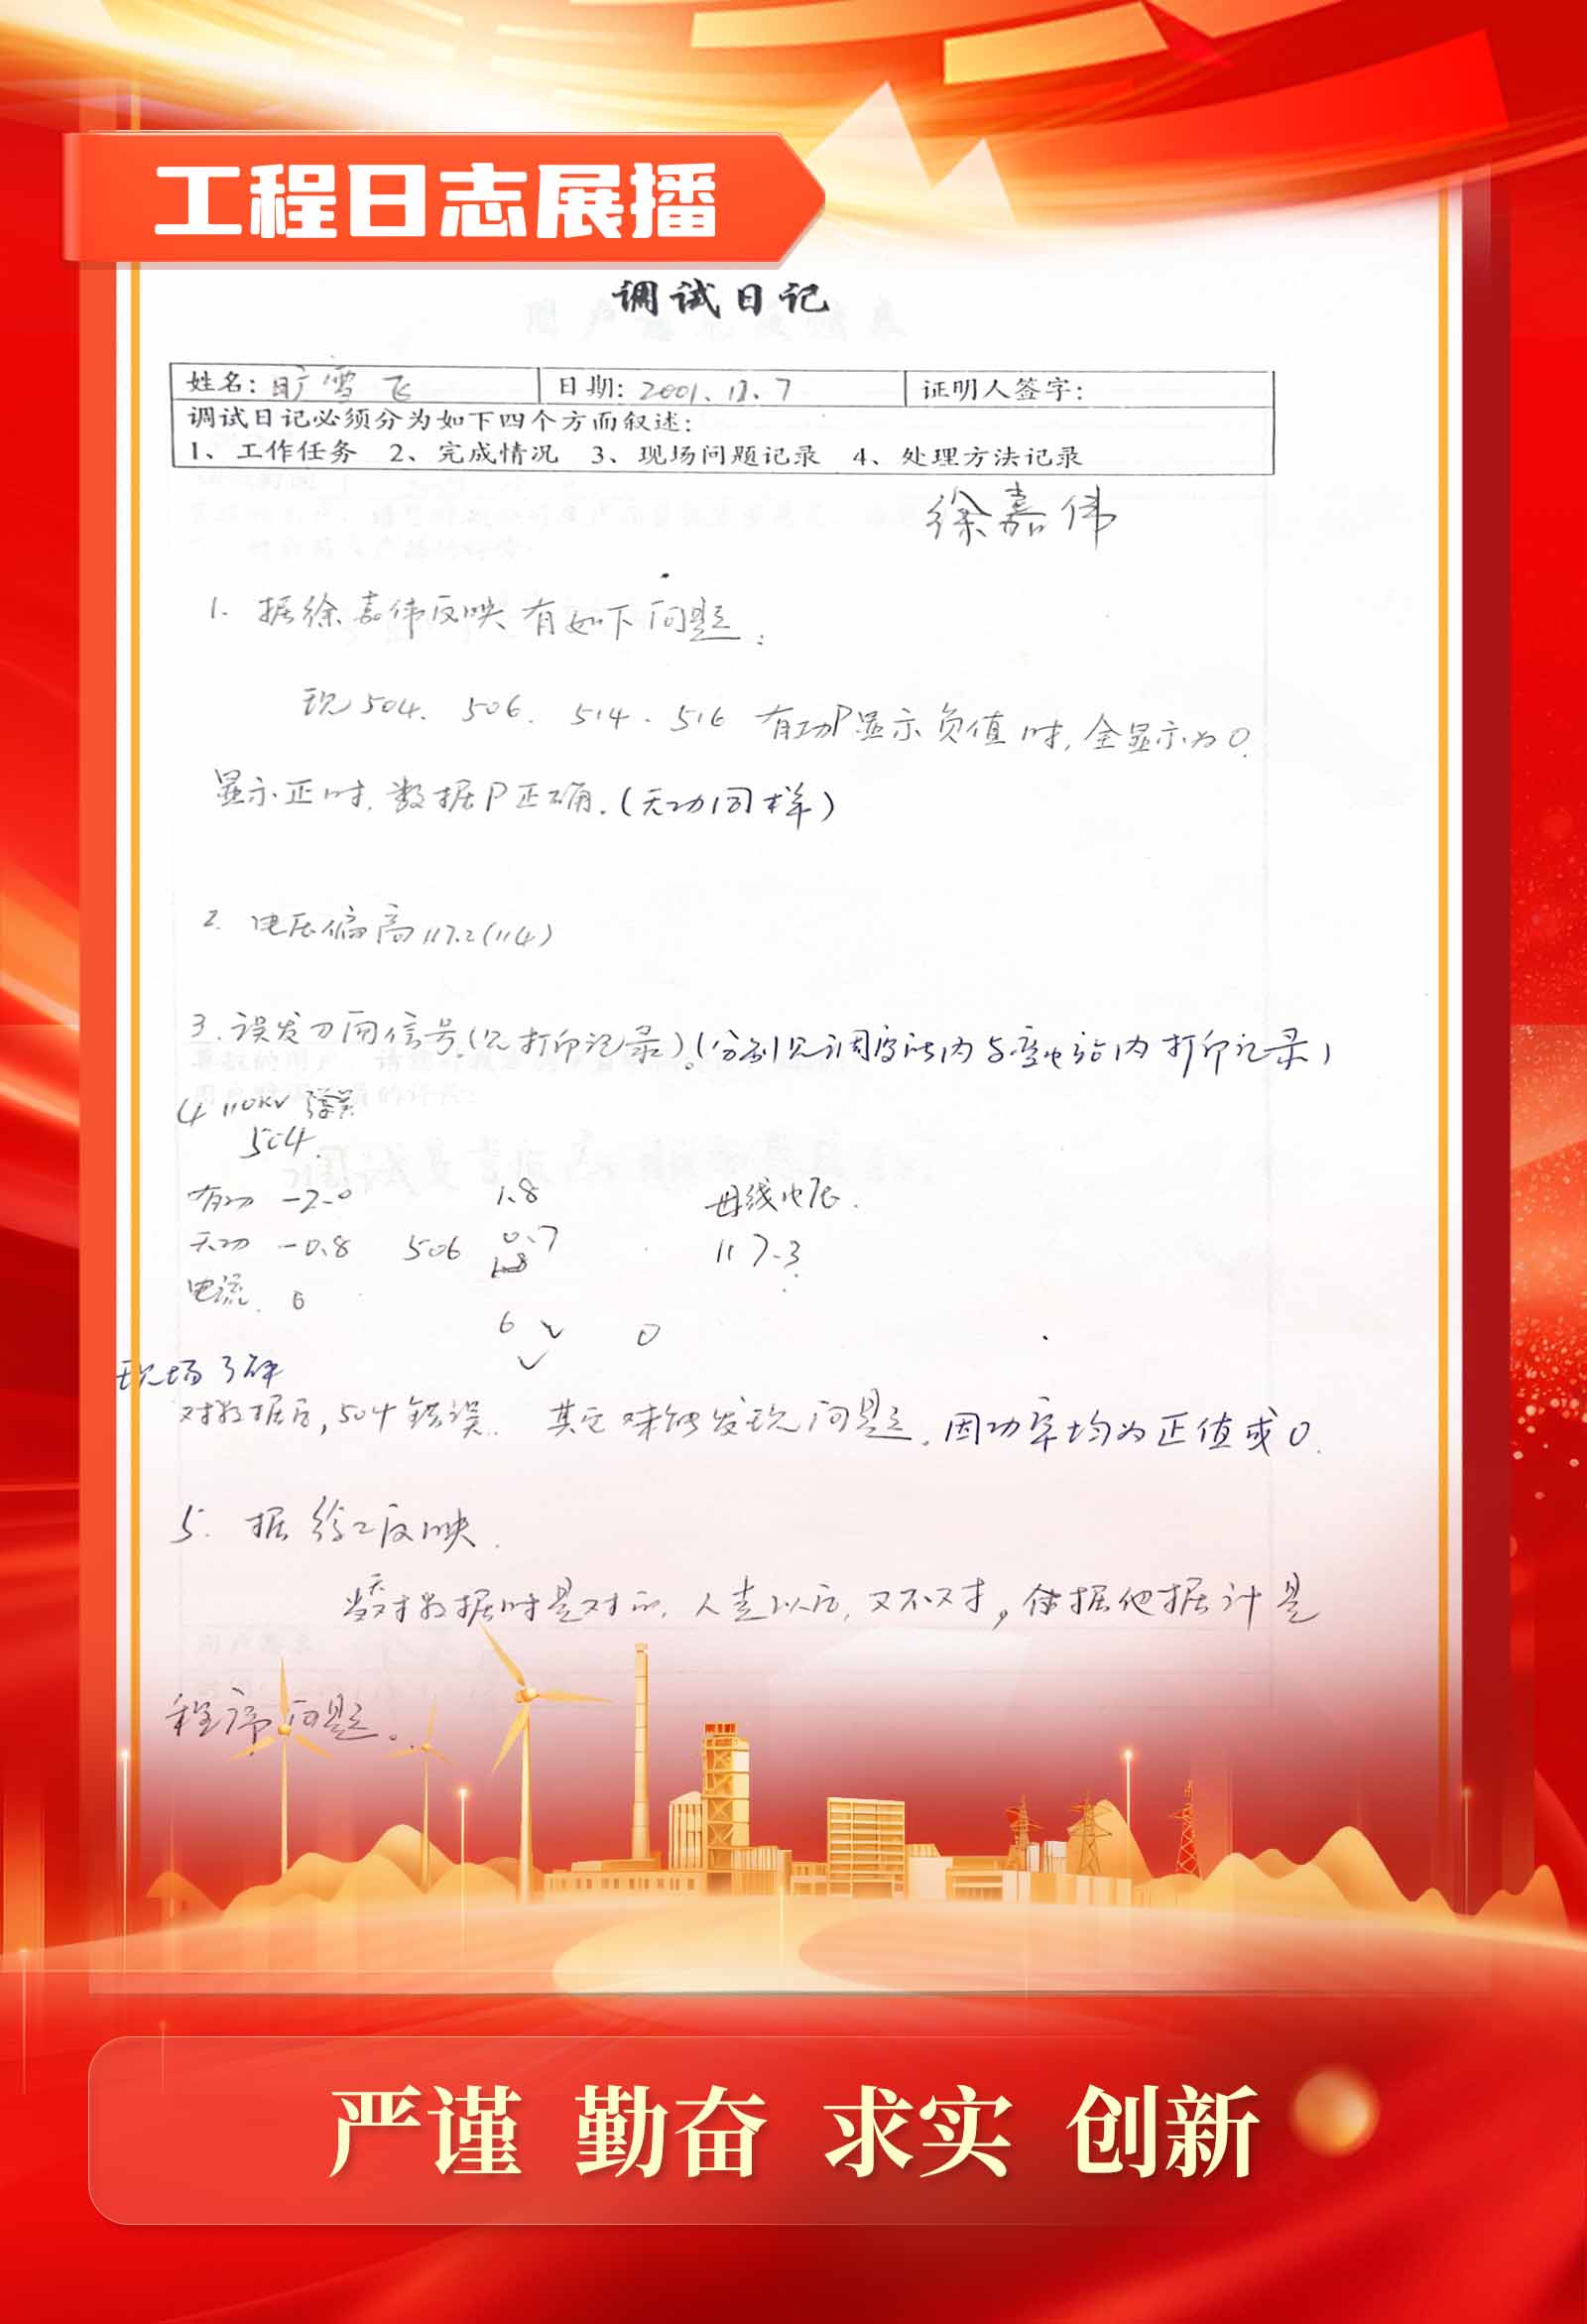 工程日志展播
调试日记
姓名: 旷雪飞 日期: 2001.12.7 证明人签字:
调试日记必须分为如下四个方面叙述:
1、工作任务 2、完成情况 3、现场问题记录 4、处理方法记录
徐嘉伟
1. 据徐嘉伟反映有如下问题:
现504. 506. 514. 516 有功P显示负值时, 全显示为0.
显示正时. 数据P正确. (无功同样)
2. 电压偏高117.2(114)
3. 误发刀闸信号.(见打印记录)。(分别见调度所内与变电站内打印记录)
4 110KV
504.
有功 -2.0 1.8 母线电压.
无功 -0.8 506 0.7 117.3
电流. 6
6 0
现场了解
对数据后, 504错误.. 其它未能发现问题. 因功率均为正值或0.
5. 据徐工反映.
当天对数据时是对的. 人走以后, 又不对, 据他据计是
程序问题。
严谨 勤奋 求实 创新